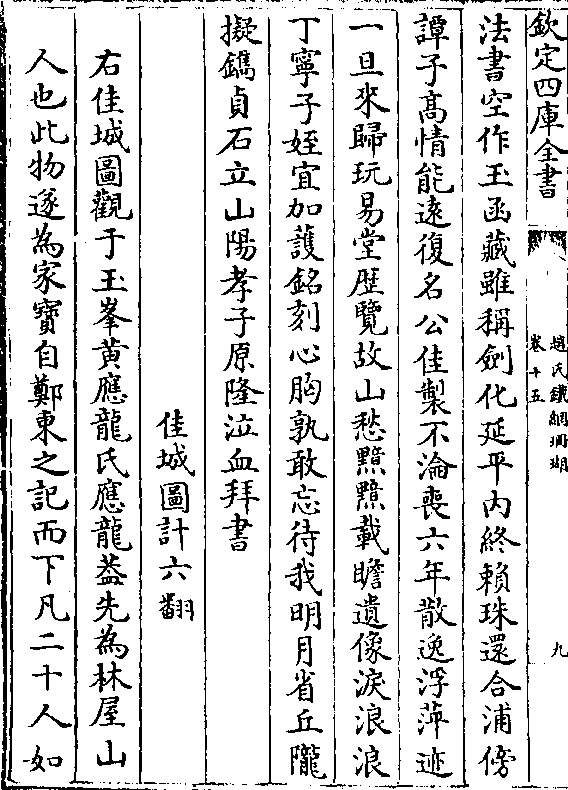 欽定四庫全書
趙氏鐵網珊瑚
卷十五
九
法書空作玉函藏雖稱劍化延平内終賴珠還合浦傍
譚子髙情能逺復名公佳製不淪喪六年散逸浮萍迹
一旦來歸玩易堂歴覽故山愁黯黯載瞻遺像淚浪浪
丁寧子姪宜加䕶銘刻心胸孰敢忘待我明月省丘隴
擬鐫貞石立山陽孝子原隆泣血拜書
佳城圖計六翻
右佳城圖觀于玉峯黄應龍氏應龍葢先為林屋山
人也此物遂為家寳自鄭東之記而下凡二十人如